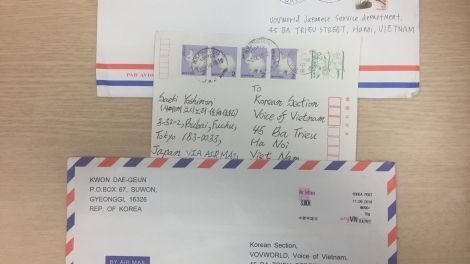 VOVWORLD Japanese Service department.
45 BA TRIEU STREET, HANOI, VIETNAM
PAR AVION
Saeki Yoshinori
3-52-2, Bubai, Fuchu,
Tokyo 183-0033,
Japan VIA AIR MAIL
To
Korean Section
Voice of Vietnam
45 Ba Trieu
Ha Noi
Viet Nam
KWON DAE-GEUN
P.O.BOX 67, SUWON,
GYEONGGI, 16326
REP. OF KOREA
BY AIR MAIL
KOREA POST
VN
Korean Section,
VOVWORLD, Voice of Vietnam,
45 BA TRIEU STREET,